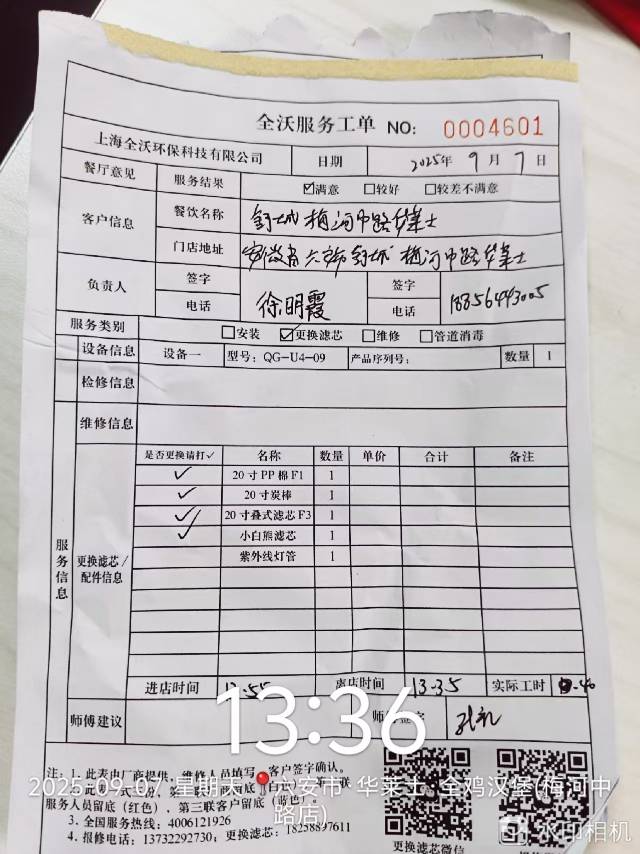 全沃服务工单 NO: 0004601
上海全沃环保科技有限公司 日期 2025年 9 月 7 日
餐厅意见 服务结果 ☑满意 □较好 □较差不满意
客户信息 餐饮名称 舒城梅河中路华莱士
门店地址 安徽省六安市舒城 梅河中路华莱士
负责人 签字 徐明霞 签字
电话 电话 18856443005
服务类别 □安装 ☑更换滤芯 □维修 □管道消毒
设备信息 设备一 型号：QG-U4-09 产品序列号： 数量 1
检修信息
维修信息
服务信息
更换滤芯/配件信息
是否更换请打✓ 名称 数量 单价 合计 备注
✓ 20寸PP棉F1 1
✓ 20寸炭棒 1
✓ 20寸叠式滤芯F3 1
✓ 小白熊滤芯 1
紫外线灯管 1
进店时间 离店时间 13-35 实际工时
师傅建议
13:36
2025.09.07 星期天 六安市·华莱士·全鸡汉堡(梅河中路店)
注：1. 此表由厂商提供，维修人员填写，客户签字确认。
服务人员留底（红色）、第三联客户留底（蓝色）。
3. 全国服务热线：4006121926
4. 报修电话：13732292730；更换滤芯：18258897611
更换滤芯微信
水印相机